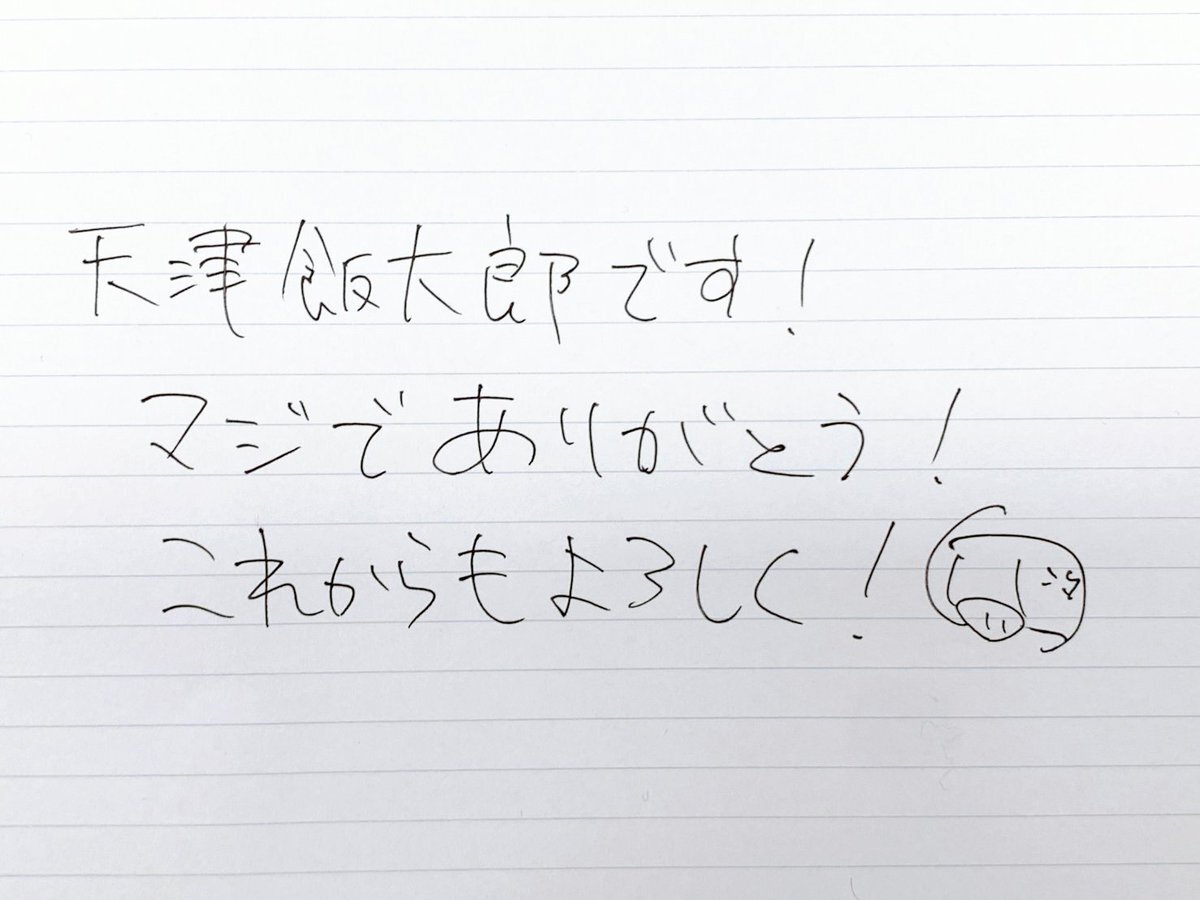 天津飯大郎です!
マジでありがとう!
これからもよろしく!